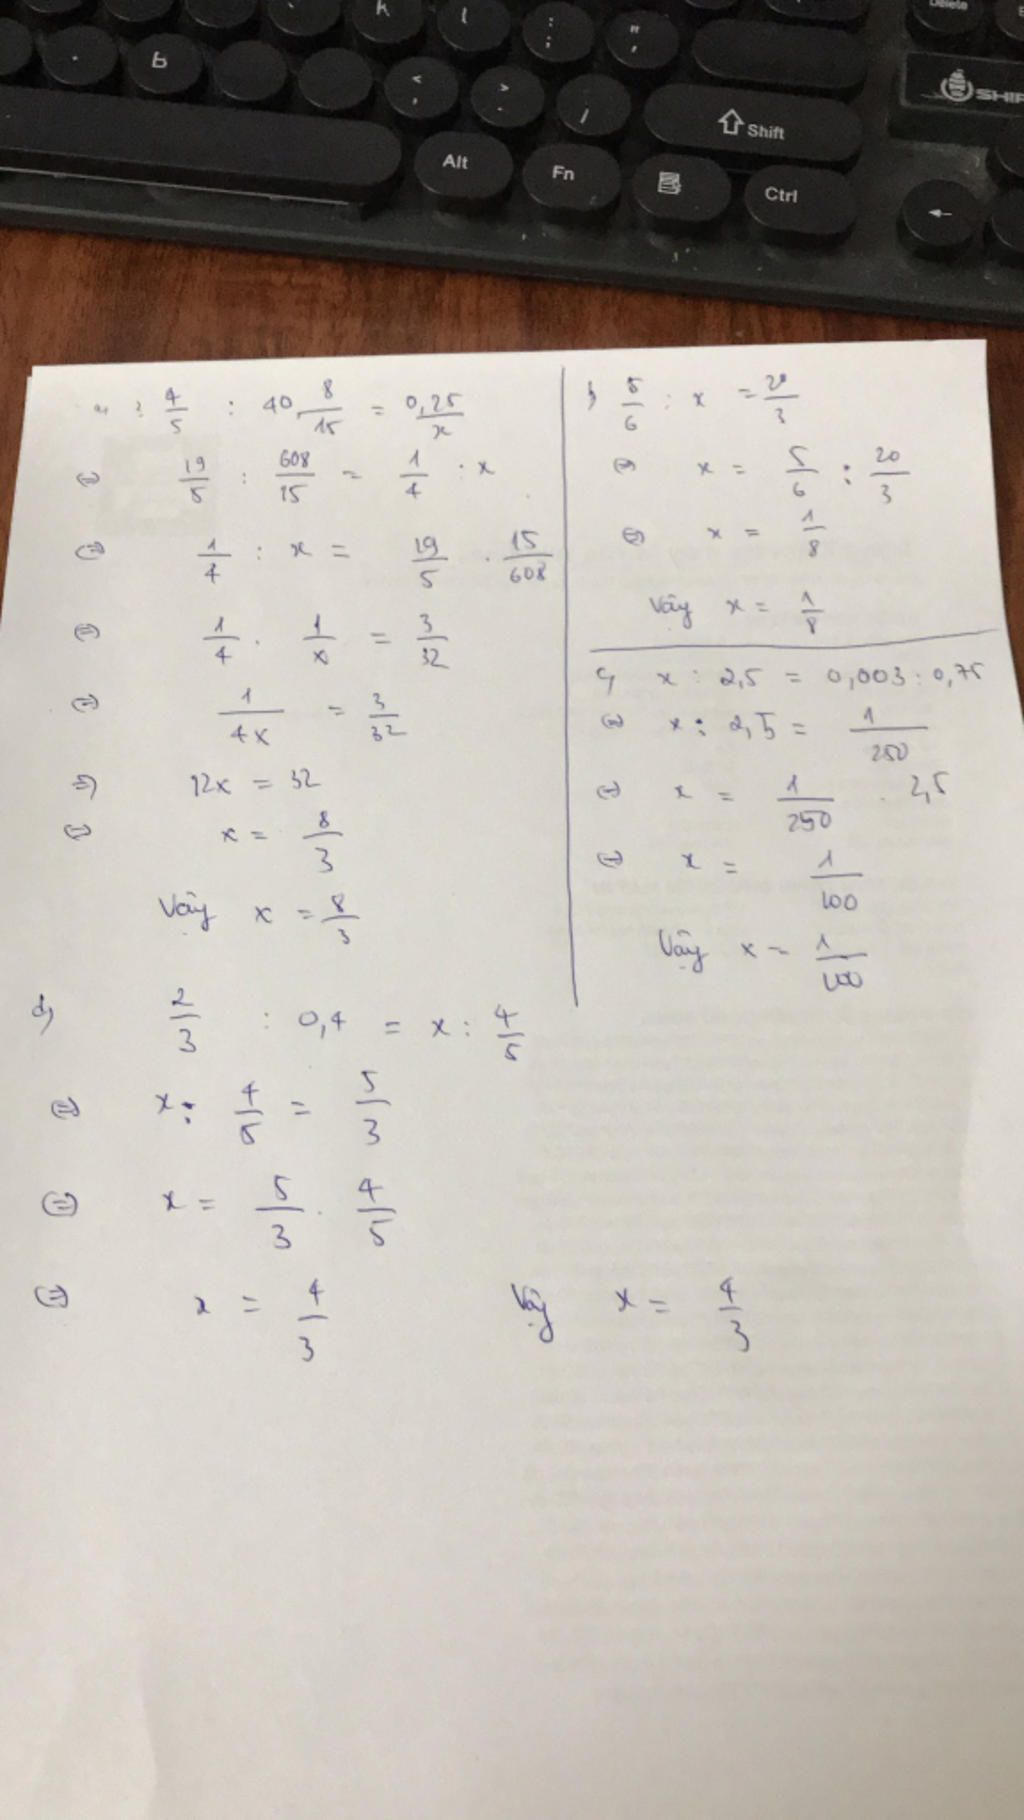 K L : ; " '
6 < , > . /
Delete
SHIF
Shift
Alt Fn Ctrl ←
4/5 : 40 8/15 = 0,25/x
⇔ 19/5 : 608/15 = 1/4 : x
⇔ 1/4 : x = 19/5 . 15/608
⇔ 1/4 . 1/x = 3/32
⇔ 1/4x = 3/32
⇒ 12x = 32
⇔ x = 8/3
Vậy x = 8/3
b) 5/6 : x = 20/3
⇔ x = 5/6 : 20/3
⇔ x = 1/8
Vậy x = 1/8
c) x : 2,5 = 0,003 : 0,75
⇔ x : 2,5 = 1/250
⇔ x = 1/250 . 2,5
⇔ x = 1/100
Vậy x = 1/100
d) 2/3 : 0,4 = x : 4/5
⇔ x : 4/5 = 5/3
⇔ x = 5/3 . 4/5
⇔ x = 4/3 Vậy x = 4/3